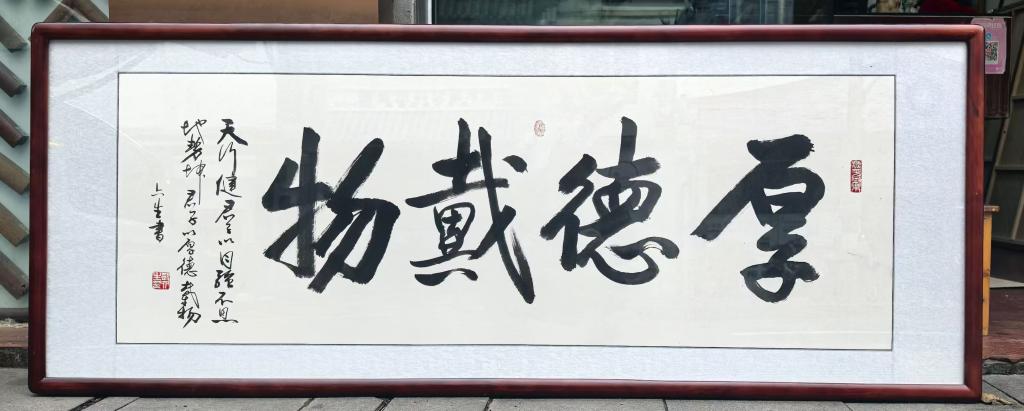 厚德戴物
天行健君子以自強不息
地势坤君子以厚德載物
生書